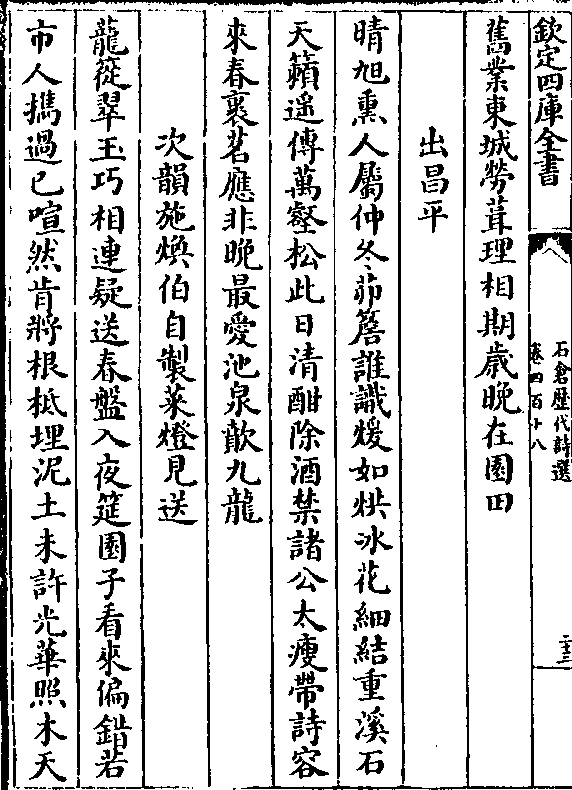 欽定四庫全書
石倉歴代詩選
卷四百十八
二十三
舊業東城勞葺理相期歲晚在園田
出昌平
晴旭熏人屬仲冬茆簷誰識煖如烘冰花細結重溪石
天籟遥傳萬壑松此日清酣除酒禁諸公太瘦帶詩容
來春裹茗應非晚最愛池泉歕九龍
次韻施煥伯自製菜燈見送
龍篵翠玉巧相連疑送春盤入夜筵園子看來偏錯若
市人擕過已喧然肯將根柢埋泥土未許光華照木天